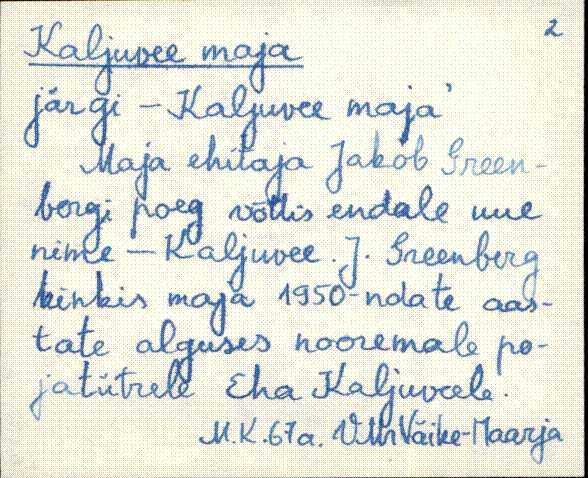 2
Kaljuvee maja
järgi – Kaljuvee maja'
Maja ehitaja Jakob Green-
bergi poeg võttis endale uue
nime – Kaljuvee. J. Greenberg
kinkis maja 1950-ndate aas-
tate alguses nooremale po-
jatütrele Eha Kaljuveele.
M.K. 67a. VMr Väike-Maarja